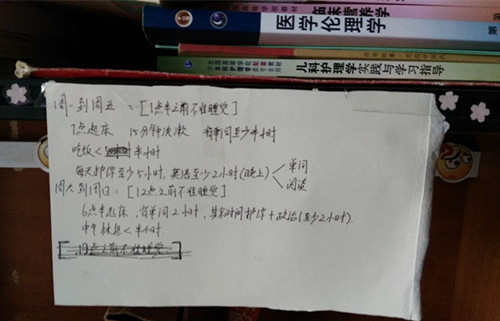 临床营养学
医学伦理学
儿科护理学实践与学习指导
周一到周五：[1点半之前不准睡觉]
7点起床 15分钟洗漱 背单词至少半小时
吃饭<半小时
每天护综至少5小时，英语至少2小时(晚上)<单词
阅读
周六到周日：[12点之前不准睡觉]
6点半起床，背单词2小时，其余时间护综+政治(至少2小时)
中午休息<半小时